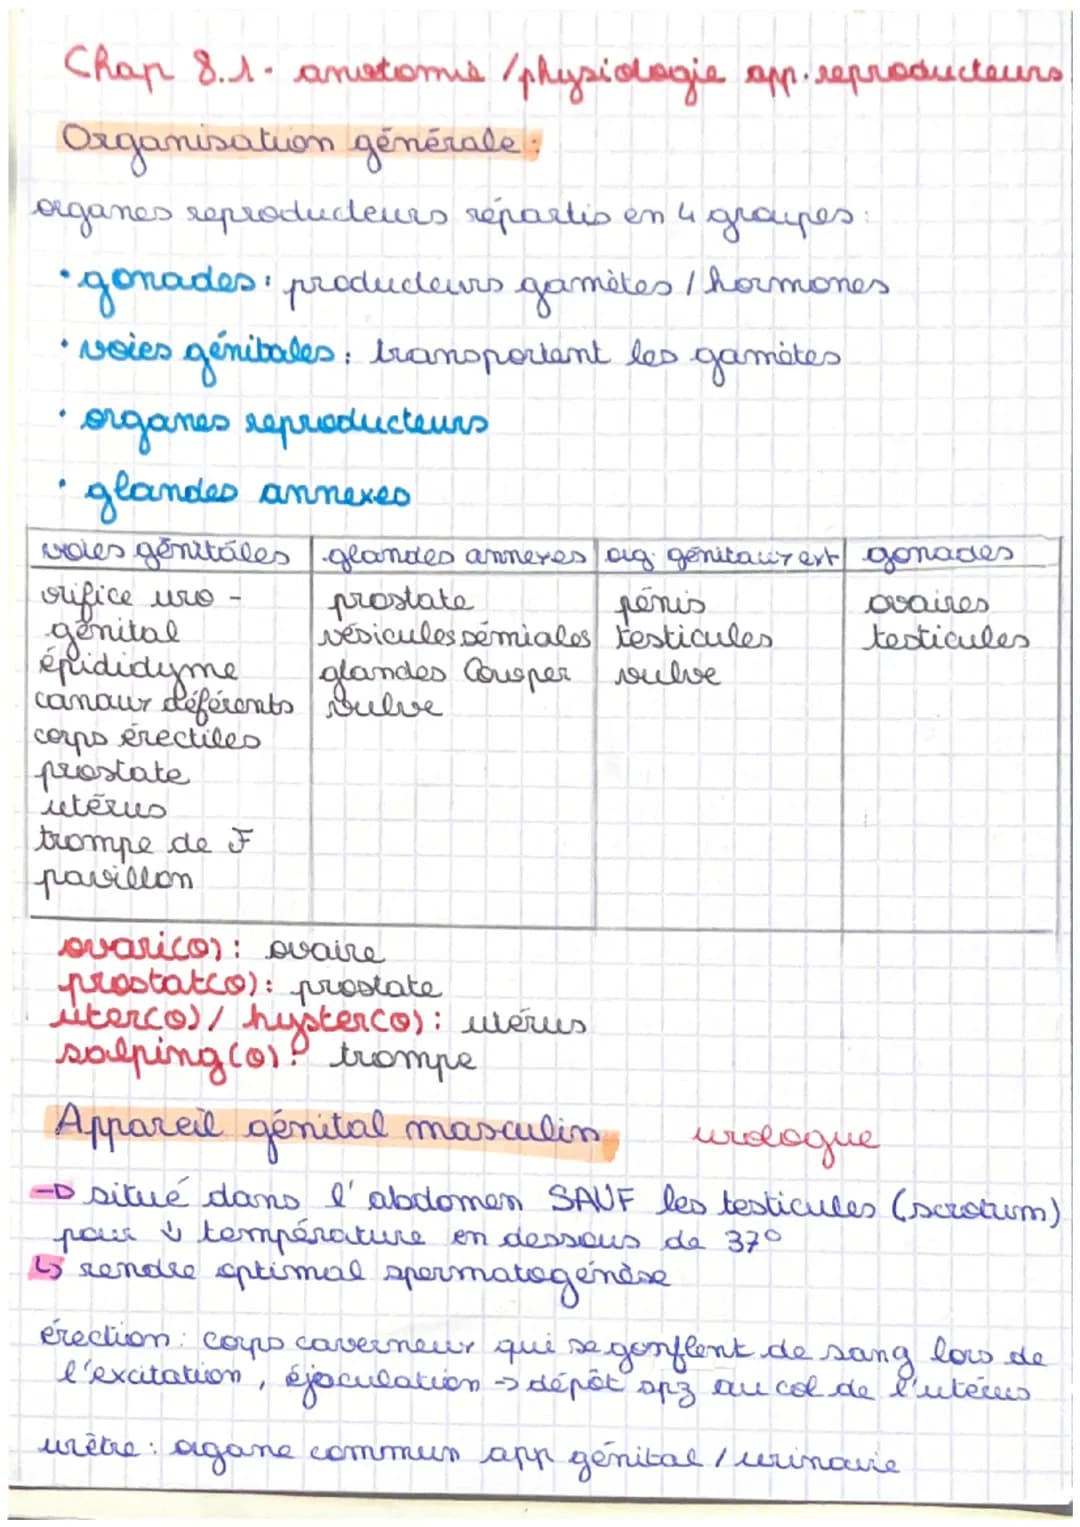 Chap 8.1- anatomie /physiologie app. reproducteurs
Organisation générale :
organes reproducteurs répartis en 4 groupes :
• gonades : producteurs gamètes / hormones
• voies génitales : transportent les gamètes
• organes reproducteurs
• glandes annexes
voies génitales | glandes annexes | org. génitaux ext | gonades
orifice uro - | prostate | pénis | ovaires
génital | vésicules sémiales | testicules | testicules
épididyme | glandes Cowper | vulve
canaux déférents | vulve
corps érectiles
prostate
utérus
trompe de F
pavillon
ovaric(o) : ovaire
prostat(o) : prostate
uter(o) / hyster(o) : utérus
salping(o) : trompe
Appareil génital masculin urologue
→ situé dans l'abdomen SAUF les testicules (scrotum)
pour ↓ température en dessous de 37°
↳ rendre optimal spermatogénèse
érection : corps caverneux qui se gonflent de sang lors de
l'excitation, éjaculation → dépôt spz au col de l'utérus
urètre : organe commun app génital / urinaire